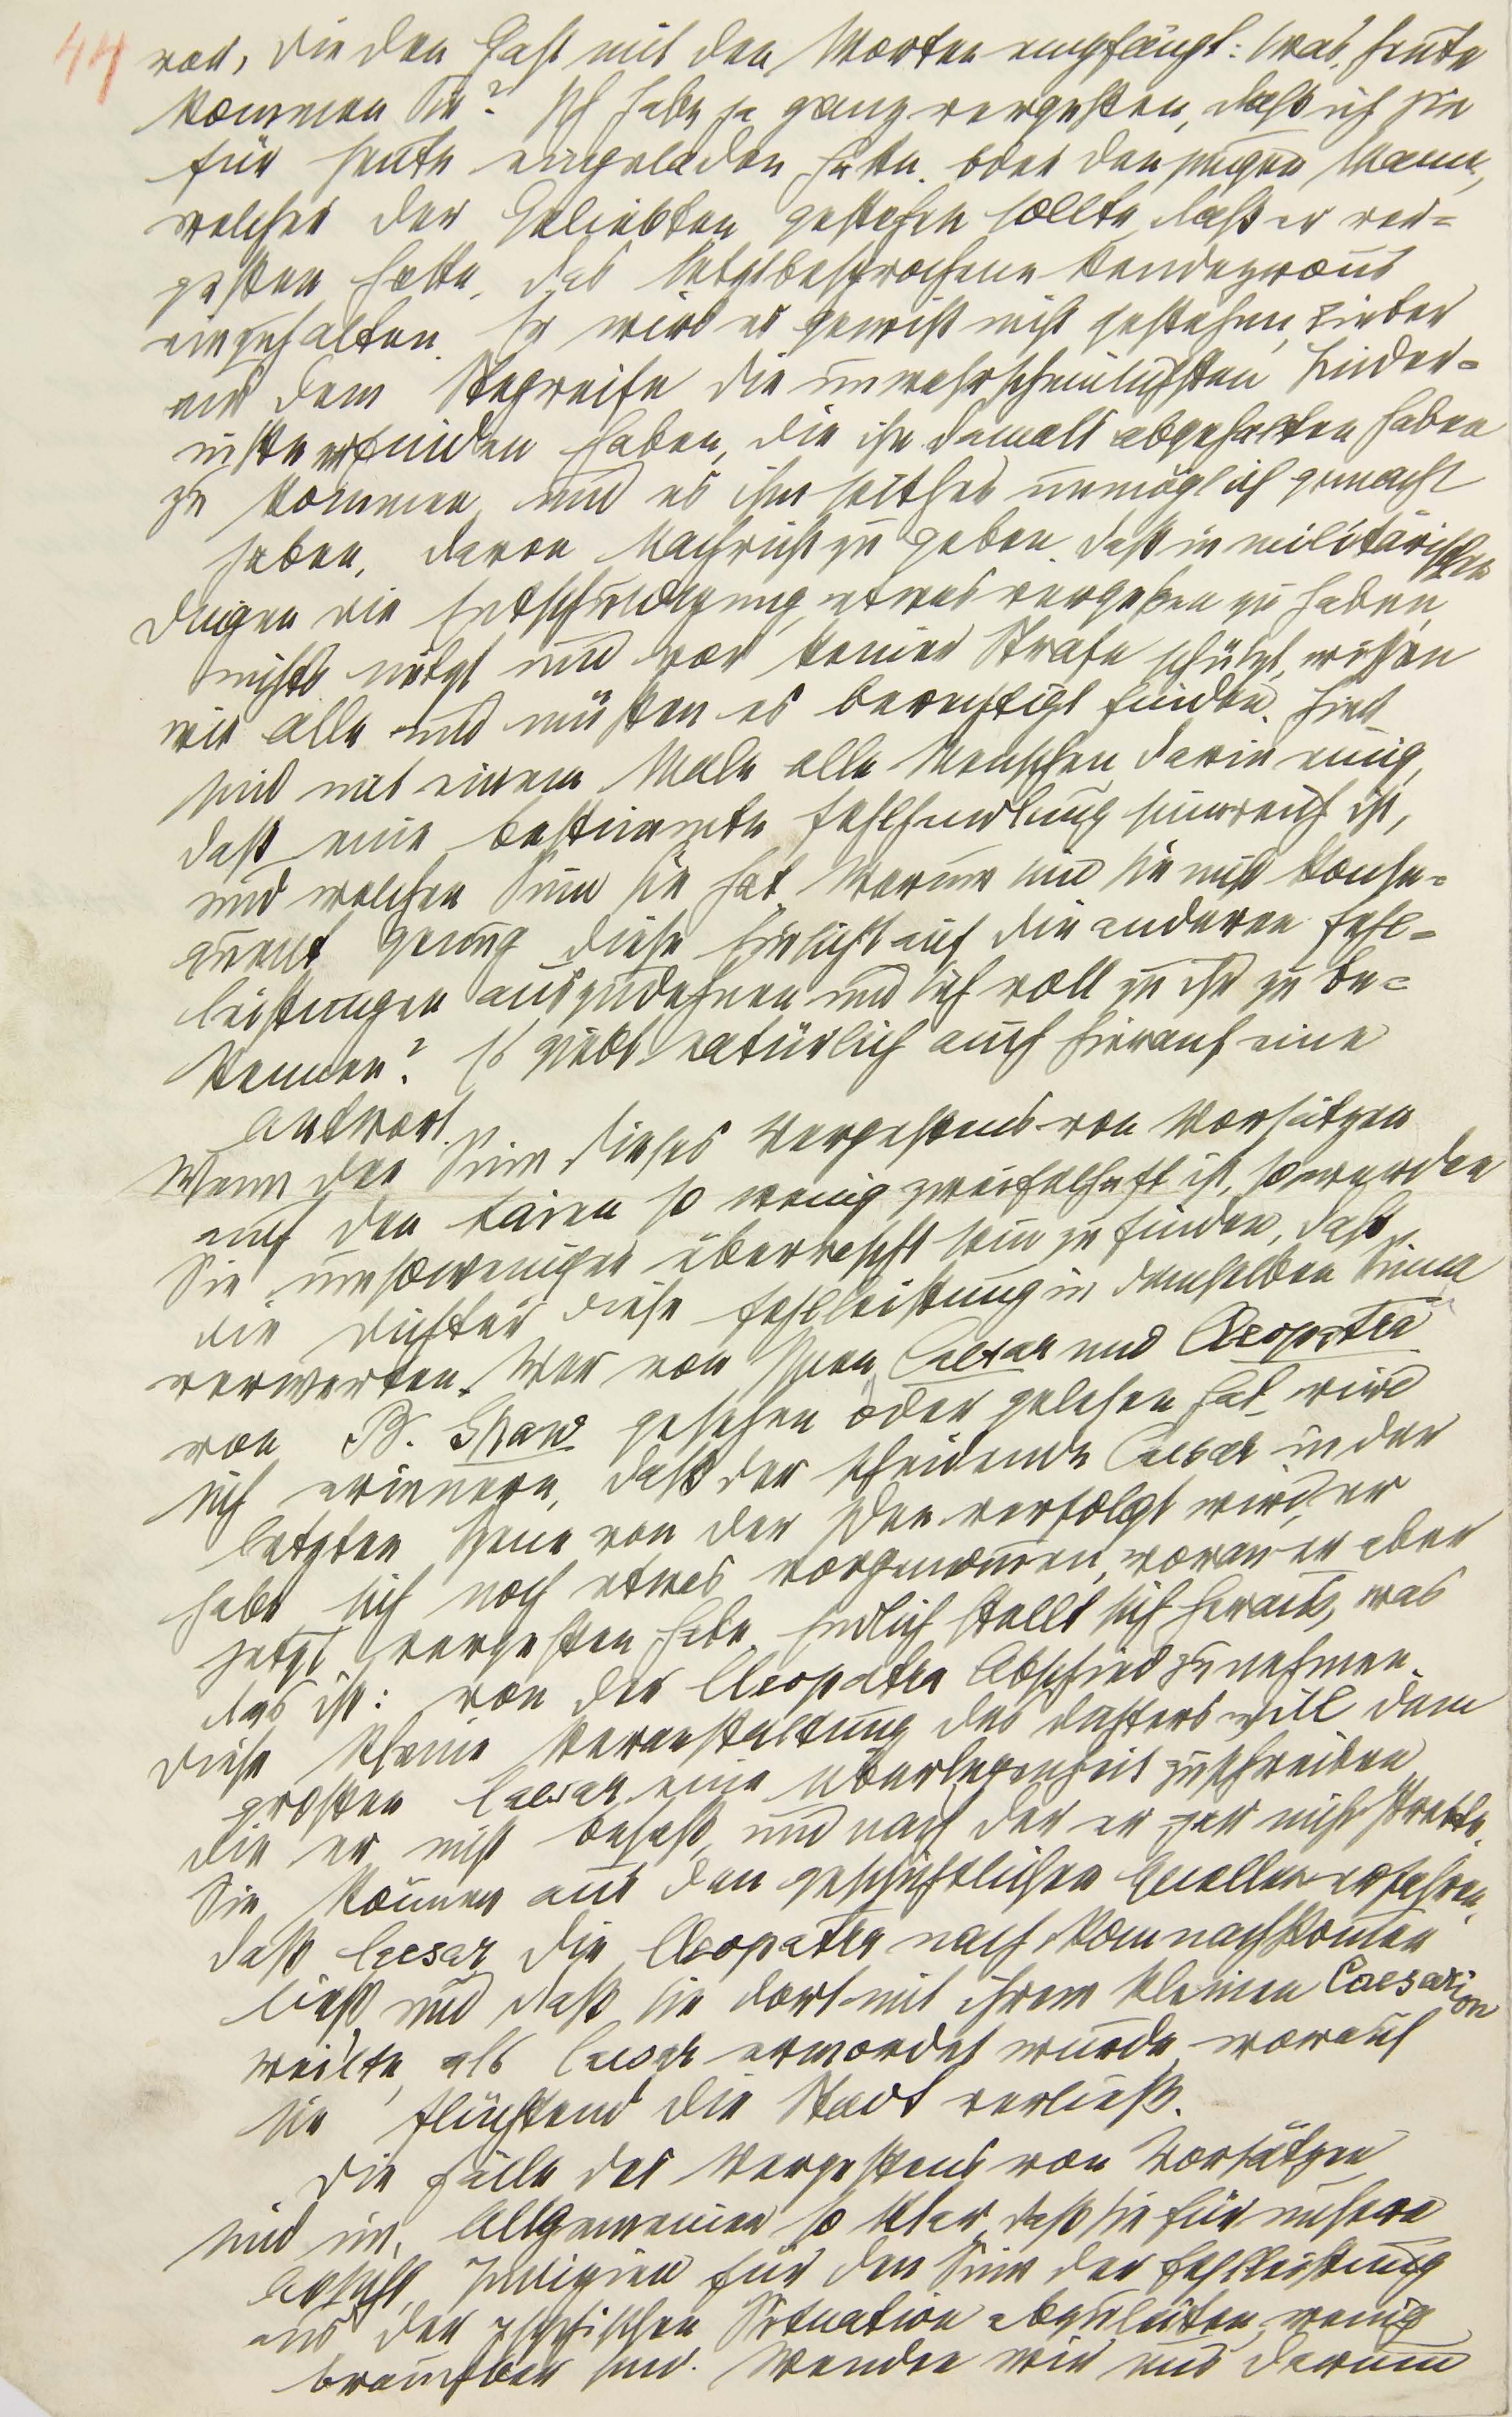 44
vor, die den Gast mit den Worten empfängt: Was, heute
kommen Sie? Ich habe ja ganz vergessen, daß ich Sie
für heute eingeladen hatte. oder den jungen Mann,
welcher der Geliebten gestehen sollte, daß er ver-
gessen hatte, das letztbesprochene Rendezvous
einzuhalten. Er wird es gewiß nicht gestehen, lieber
aus dem Stegreife die unwahrscheinlichsten Hinder-
nisse erfinden haben, die ihn damals abgehalten haben
zu kommen und es ihm seither unmöglich gemacht
haben, davon Nachricht zu geben. Daß in militärischen
Dingen die Entschuldigung, etwas vergessen zu haben,
nichts nützt und vor keiner Strafe schützt, wissen
wir alle und müssen es berechtigt finden. Hier
sind mit einem Male alle Menschen darin einig,
daß eine bestimmte Fehlhandlung sinnreich ist,
und welchen Sinn sie hat. Warum sind sie nicht konse-
quent genug diese Einsicht auf die anderen Fehl-
leistungen auszudehnen und sich voll zu ihr zu be-
kennen? Es giebt natürlich auch hierauf eine
Antwort.
Wenn der Sinn dieses Vergessens von Vorsätzen
auch den Laien so wenig zweifelhaft ist, so werden
Sie umsoweniger überrascht sein zu finden, daß
die Dichter diese Fehlleistung in demselben Sinne
verwerten. Wer von Ihnen Caesar und Cleopatra
von B. Shaw gesehen oder gelesen hat, wird
sich erinnern, daß der scheidende Caesar in der
letzten Szene von der Idee verfolgt wird, er
habe sich noch etwas vorgenommen, woran er aber
jetzt vergessen habe. Endlich stellt sich heraus, was
das ist: von der Cleopatra Abschied zu nehmen.
Diese kleine Veranstaltung des Dichters will dem
großen Caesar eine Überlegenheit zuschreiben,
die er nicht besaß, und nach der er gar nicht strebte.
Sie können aus den geschichtlichen Quellen erfahren,
daß Caesar die Cleopatra nach Rom nachkommen
ließ und daß sie dort mit ihrem kleinen Caesarion
weilte, als Caesar ermordet wurde, worauf
sie flüchtend die Stadt verließ.
Die Fälle des Vergessens von Vorsätzen
sind im Allgemeinen so klar, daß sie für unsere
Absicht, Indizien für den Sinn der Fehlleistung
aus der psychischen Situation abzuleiten, wenig
brauchbar sind. Wenden wir uns darum